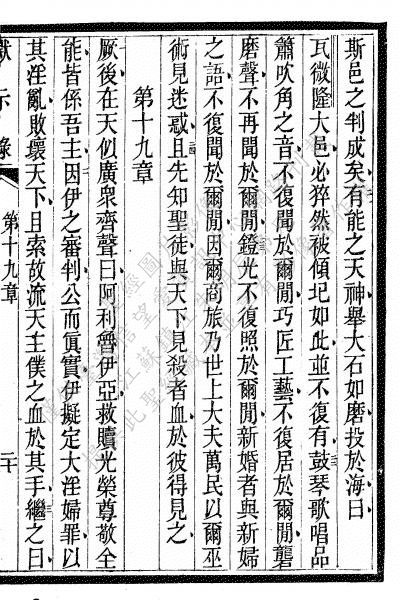 斯邑之判成矣有能之天神舉大石如磨投於海曰
瓦微隆大邑必猝然被傾圮如此並不復有鼓琴歌唱品
簫吹角之音不復聞於爾閒巧匠工藝不復居於爾閒礱
磨聲不再聞於爾閒鏡光不復照於爾閒新婚者與新婦
之語不復聞於爾閒因爾商旅乃世上大夫萬民以爾巫
術見迷惑且先知聖徒與天下見殺者血於彼得見之
第十九章
厥後在天似廣衆齊聲曰阿利魯伊亞救贖光榮尊敬全
能皆係吾主因伊之審判公而眞實伊擬定大淫婦罪以
其淫亂敗壞天下且索故流天主僕之血於其手繼之曰
示錄
第十九章
二十